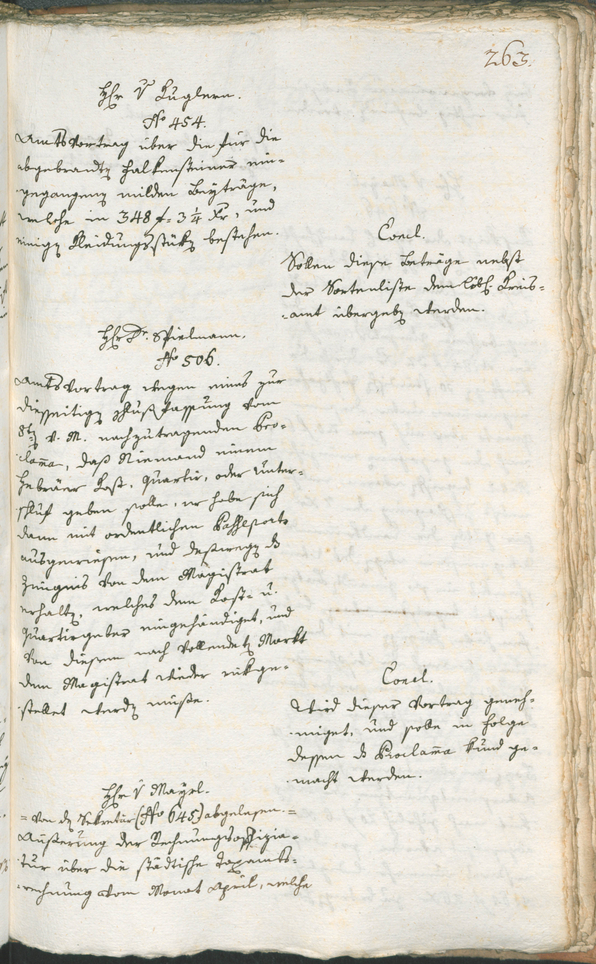 263.
Hr. v Kuglern.
No 454.
Amtsvortrag über die für die
abgebrandte Falkensteiner ein-
gegangene milden Beyträge,
welche in 348 f. 3¼ Xr, und
einigen Kleidungsstüken bestehen.
Concl.
Sollen diese Beträge nebst
der Sortenliste dem löbl. Kreis-
amt übergeben werden.
Hr. Dr. Spielmann.
No 506.
Amtsvortrag wegen eines zur
diesseitigen Schlußfassung vom
8ten v. M. nachzutragenden Pro-
clama, daß Niemand einem
Hebräer Kost, Quartir, oder Unter-
schluf geben solle, er habe sich
dann mit ordentlichen Passeports
ausgewiesen, und deßwegen d
Zeugnis von dem Magistrat
erhalten, welches dem Kost- u.
Quartirgeber eingehändiget, und
von diesem nach vollendeten Markt
dem Magistrat wieder rükge-
stellet werden müße.
Concl.
Wird dieser Vortrag geneh-
miget, und solle in Folge
dessen d Proclama kund ge-
macht werden.
Hr. v Mayrl.
= von dem Sekretär (No 645) abgelesen. =
Äußerung der Rechnungsoffizia-
tur über die städtische Taxamts-
rechnung vom Monat April, welche